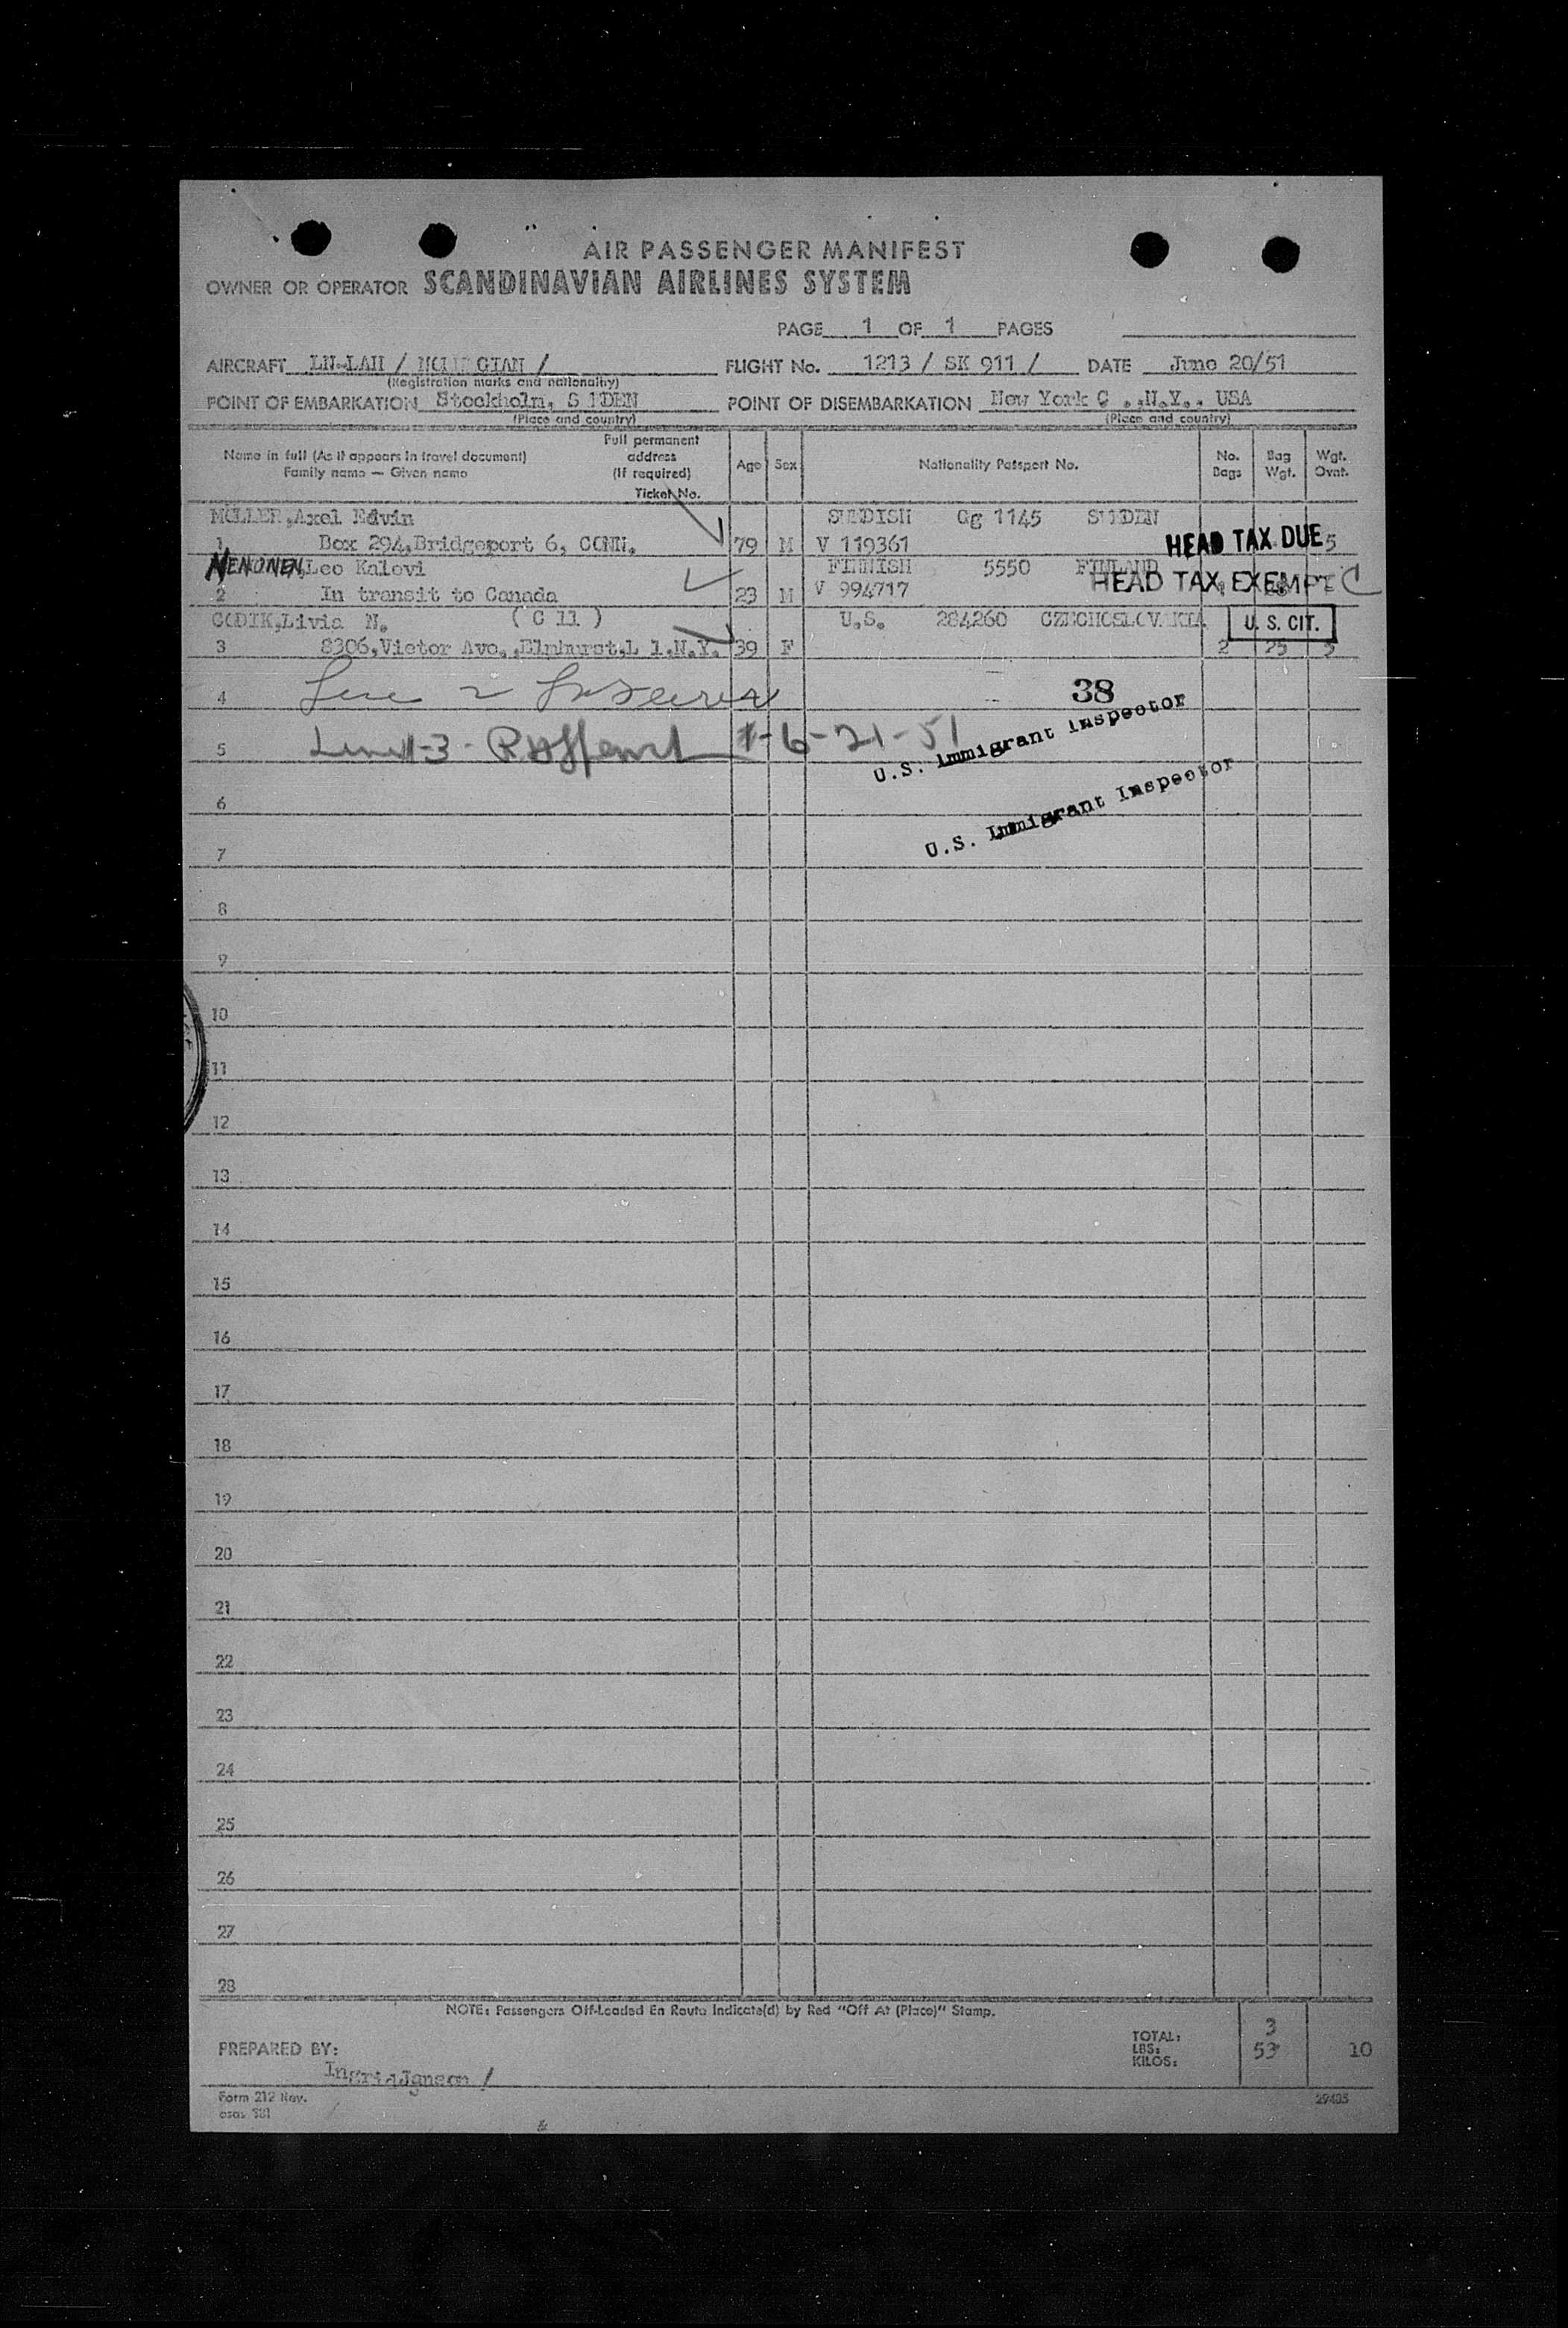 AIR PASSENGER MANIFEST
OWNER OR OPERATOR SCANDINAVIAN AIRLINES SYSTEM
PAGE 1 OF 1 PAGES
AIRCRAFT LN-LAH / NORWEGIAN / FLIGHT No. 1213 / SK 911 / DATE June 20/51
(Registration marks and nationality)
POINT OF EMBARKATION Stockholm, SWEDEN POINT OF DISEMBARKATION New York C .,N.Y., USA
(Place and country) (Place and country)
Name in full (As it appears in travel document) Family name — Given name Full permanent address (If required) Ticket No. Age Sex Nationality Passport No. No. Bags Bag Wgt. Wgt. Ovnt.
MÖLLER,Axel Edvin SWEDISH Gg 1145 SWEDEN
1 Box 294,Bridgeport 6, CONN. 79 M V 119361 HEAD TAX DUE 5
NENONEN,Leo Kalevi FINNISH 5550 FINLAND
2 In transit to Canada 23 M V 994717 HEAD TAX EXEMPT C
CODIK,Livia N. ( C 11 ) U.S. 284260 CZECHOSLOVAKIA U. S. CIT.
3 8306,Victor Ave.,Elmhurst,L I.N.Y. 39 F 2 25 5
4 38
5 6-21-51 U.S. Immigrant Inspector
6
7 U.S. Immigrant Inspector
8
9
10
11
12
13
14
15
16
17
18
19
20
21
22
23
24
25
26
27
28
NOTE: Passengers Off-Loaded En Route Indicate(d) by Red "Off At (Place)" Stamp.
PREPARED BY: TOTAL: 3
LBS: 53 10
KILOS:
Form 212 Nov.
29485